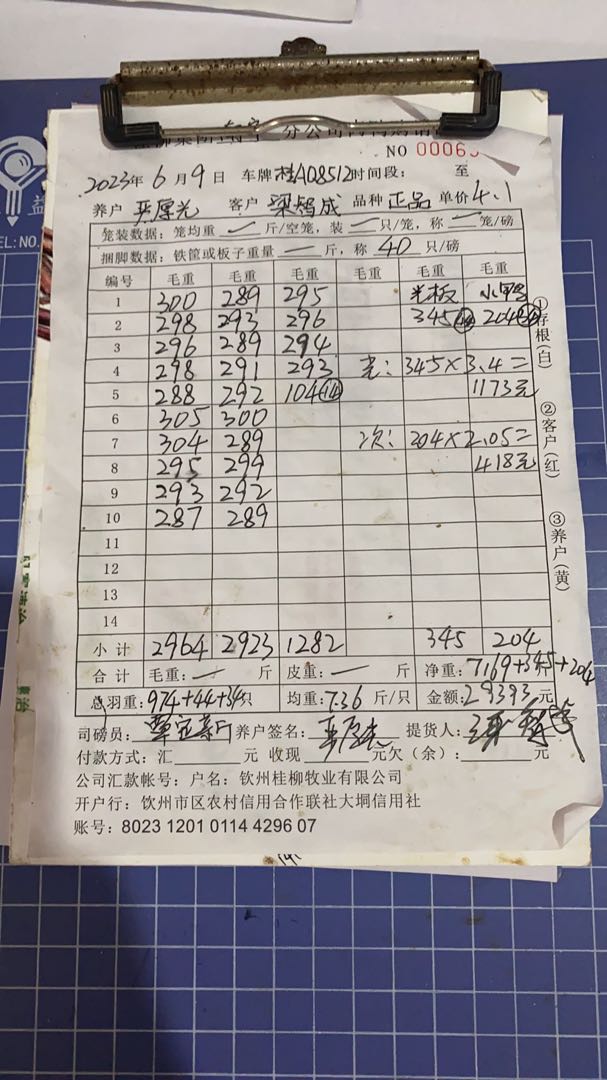 分公司
NO 00065
2023年 6月 9日 车牌 桂A08512 时间段: 至
养户 客户 梁 成 品种 正品 单价 4.1
笼装数据: 笼均重 一 斤/空笼, 装 一 只/笼, 称 一 笼/磅
捆脚数据: 铁筐或板子重量 一 斤, 称 40 只/磅
编号 毛重 毛重 毛重 毛重 毛重 毛重
1 300 289 295 光板 小鸭
2 298 293 296 345 204
3 296 289 294
4 298 291 293 光: 345×3.4=
5 288 292 104⑭ 1173元
6 305 300
7 304 289 次: 204×2.05=
8 295 299 418元
9 293 292
10 287 289
11
12
13
14
小计 2964 2923 1282 345 204
合计 毛重: 一 斤 皮重: 一 斤 净重: 7169+345+204
总羽重: 974+44+34只 均重: 7.36 斤/只 金额: 29393元
司磅员: 养户签名: 提货人:
付款方式: 汇 元 收现 元欠(余): 元
公司汇款帐号: 户名: 钦州桂柳牧业有限公司
开户行: 钦州市区农村信用合作联社大垌信用社
账号: 8023 1201 0114 4296 07
①存根(白)
②客户(红)
③养户(黄)
益
TEL:NO.